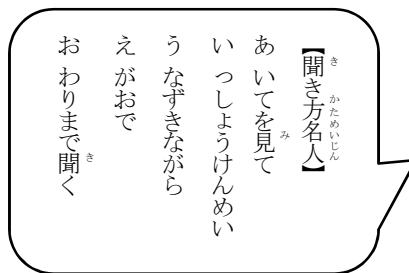 【聞き方名人】
あ いてを見て
い っしょうけんめい
う なずきながら
え がおで
お わりまで聞く